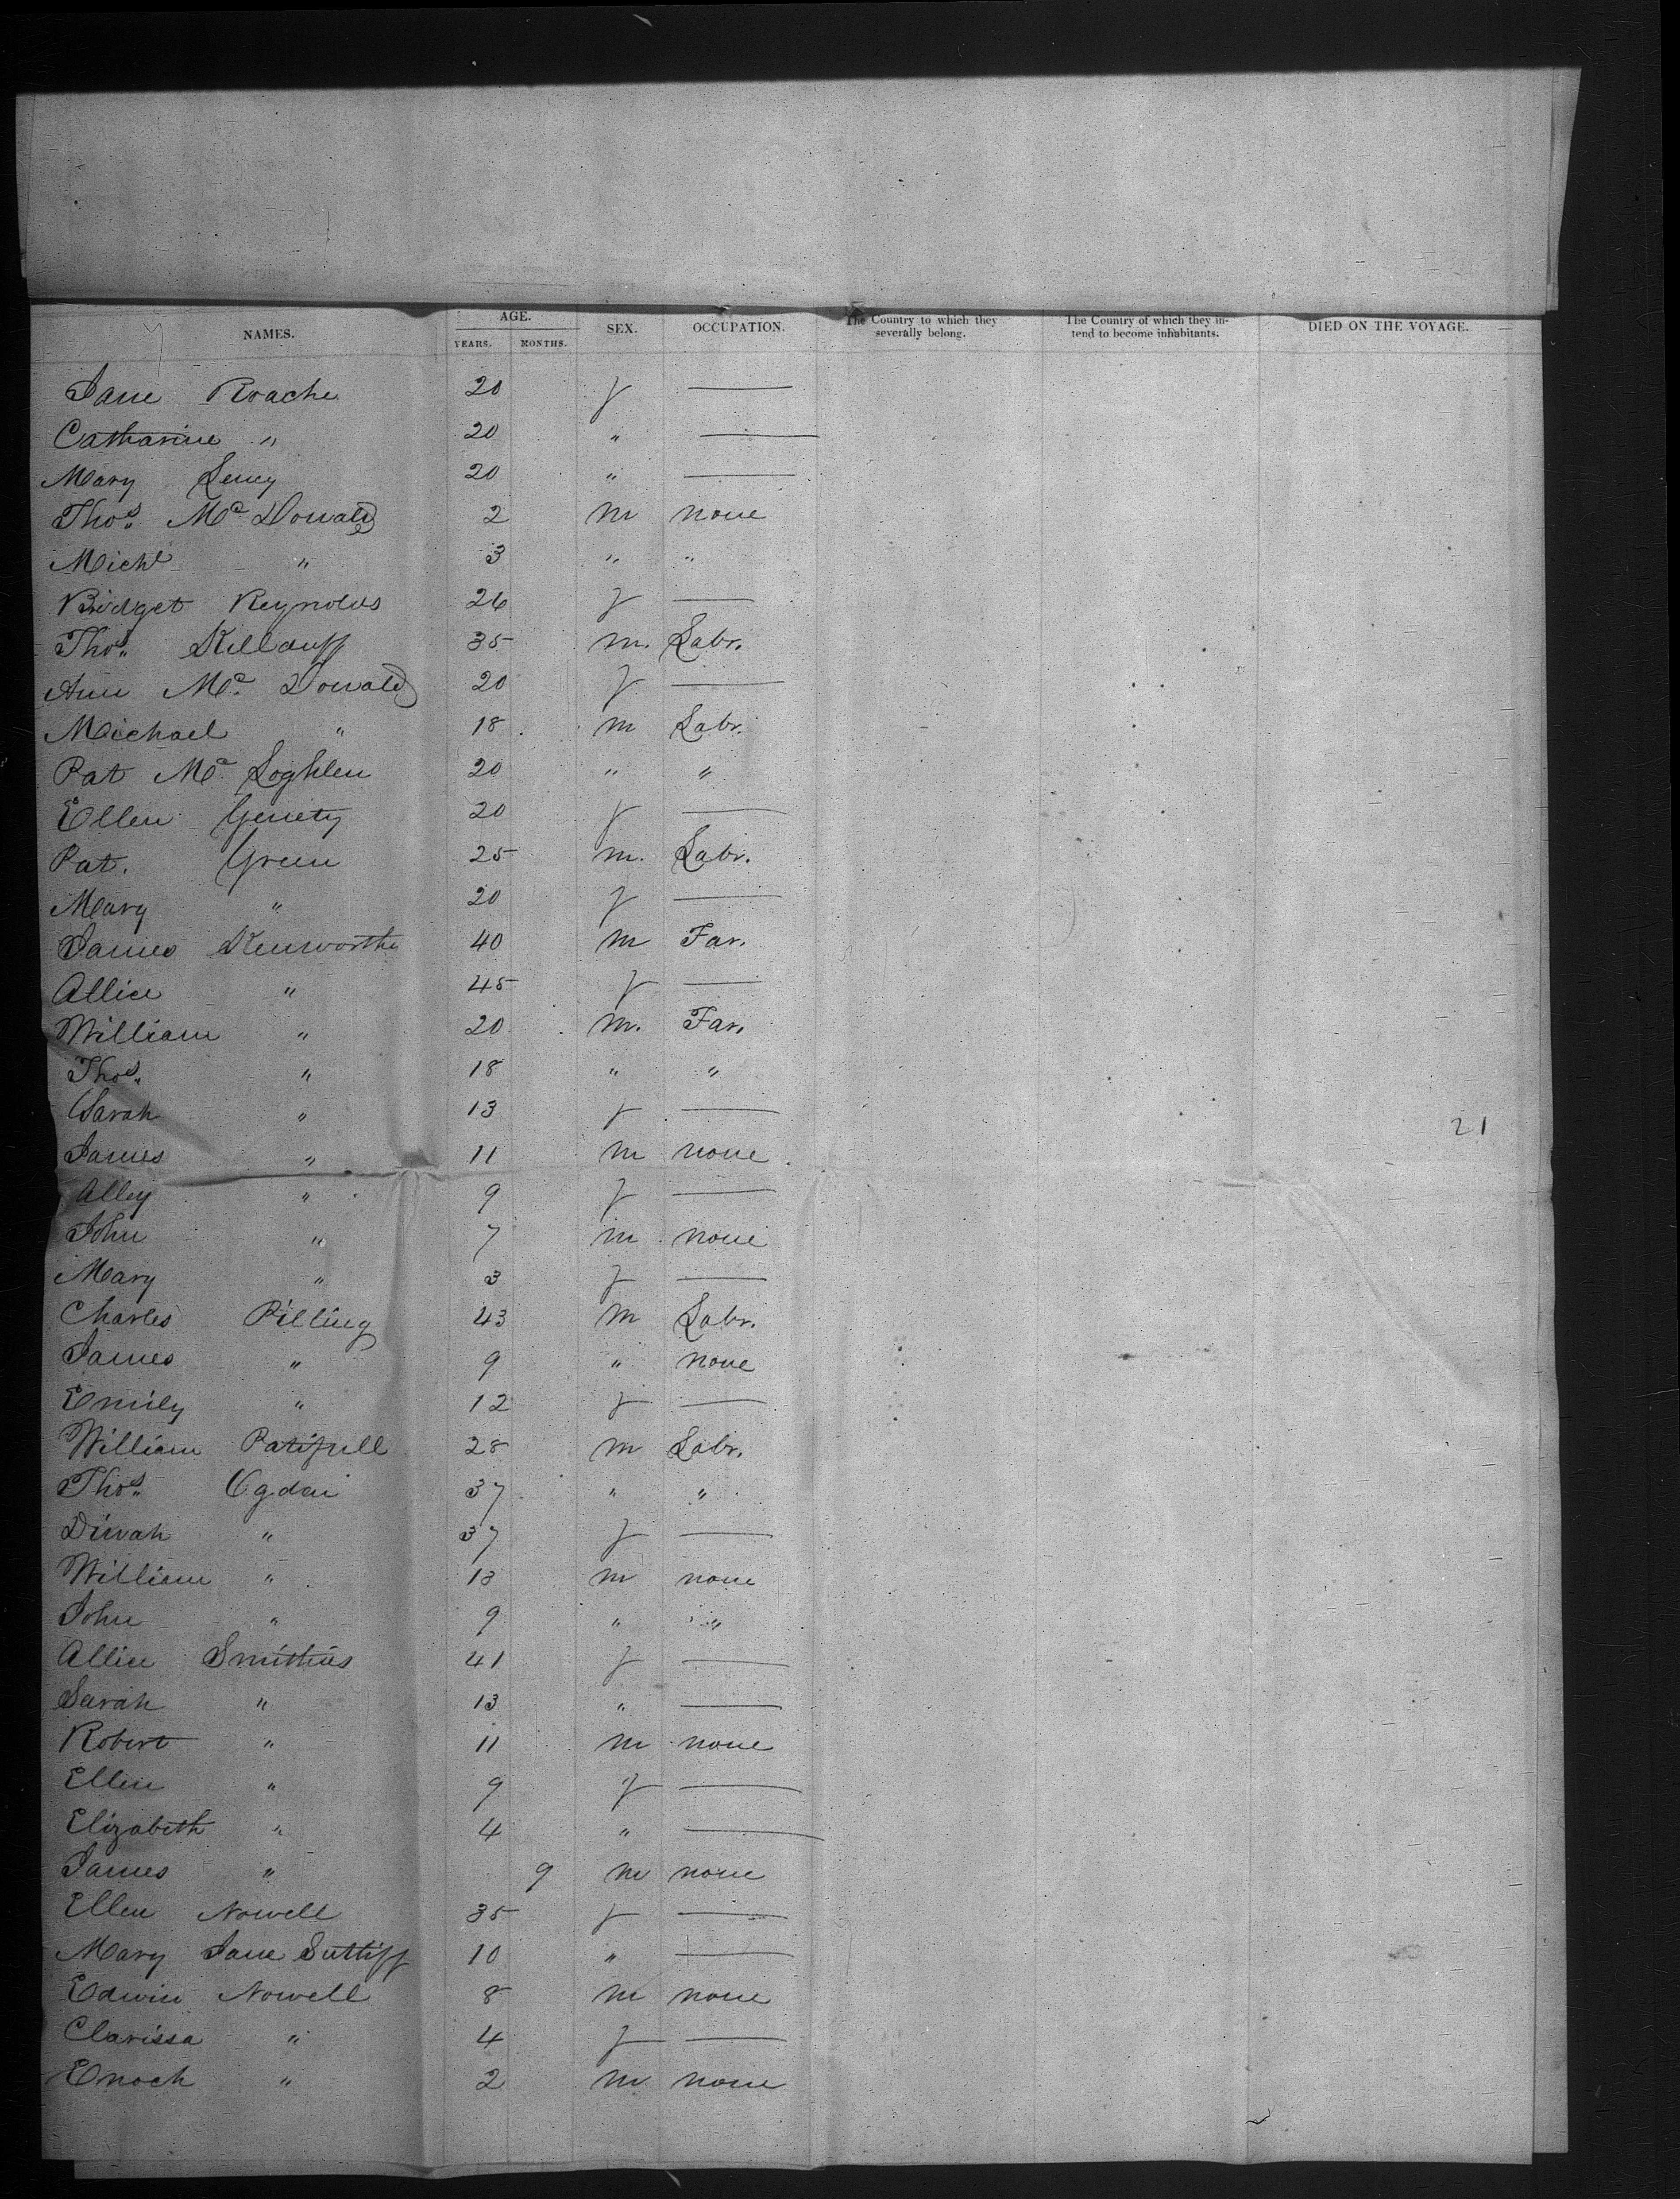 NAMES. AGE. YEARS. MONTHS. SEX. OCCUPATION. The Country to which they severally belong. The Country of which they intend to become inhabitants. DIED ON THE VOYAGE.
Jane Roache 20 f —
Catharine " 20 " —
Mary Leney 20 " —
Thos. Mc Donald 2 m none
Michl " 3 " "
Bridget Reynolds 26 f —
Thos. Killduff 35 m. Labr.
Ann Mc. Donald 20 f —
Michael " 18 m Labr.
Pat Mc. Loghlen 20 " "
Ellen Gerrety 20 f —
Pat. Green 25 m. Labr.
Mary " 20 f —
James Kenworthy 40 m Far.
Allice " 45 f —
William " 20 m. Far.
Thos. " 18 " "
Sarah " 13 f —
James " 11 m none
21
Alley " 9 f —
John " 7 m none
Mary " 3 f —
Charles Pilling 43 m Labr.
James " 9 " none
Emily " 12 f —
William 28 m Labr.
Thos. Ogden 37 " "
Dinah " 37 f —
William " 13 m none
John " 9 " "
Allice Smithies 41 f —
Sarah " 13 " —
Robert " 11 m none
Ellen " 9 f —
Elizabeth " 4 " —
James " 9 m none
Ellen Nowell 35 f —
Mary Jane Suttiff 10 " —
Edwin Nowell 8 m none
Clarissa " 4 f —
Enoch " 2 m none